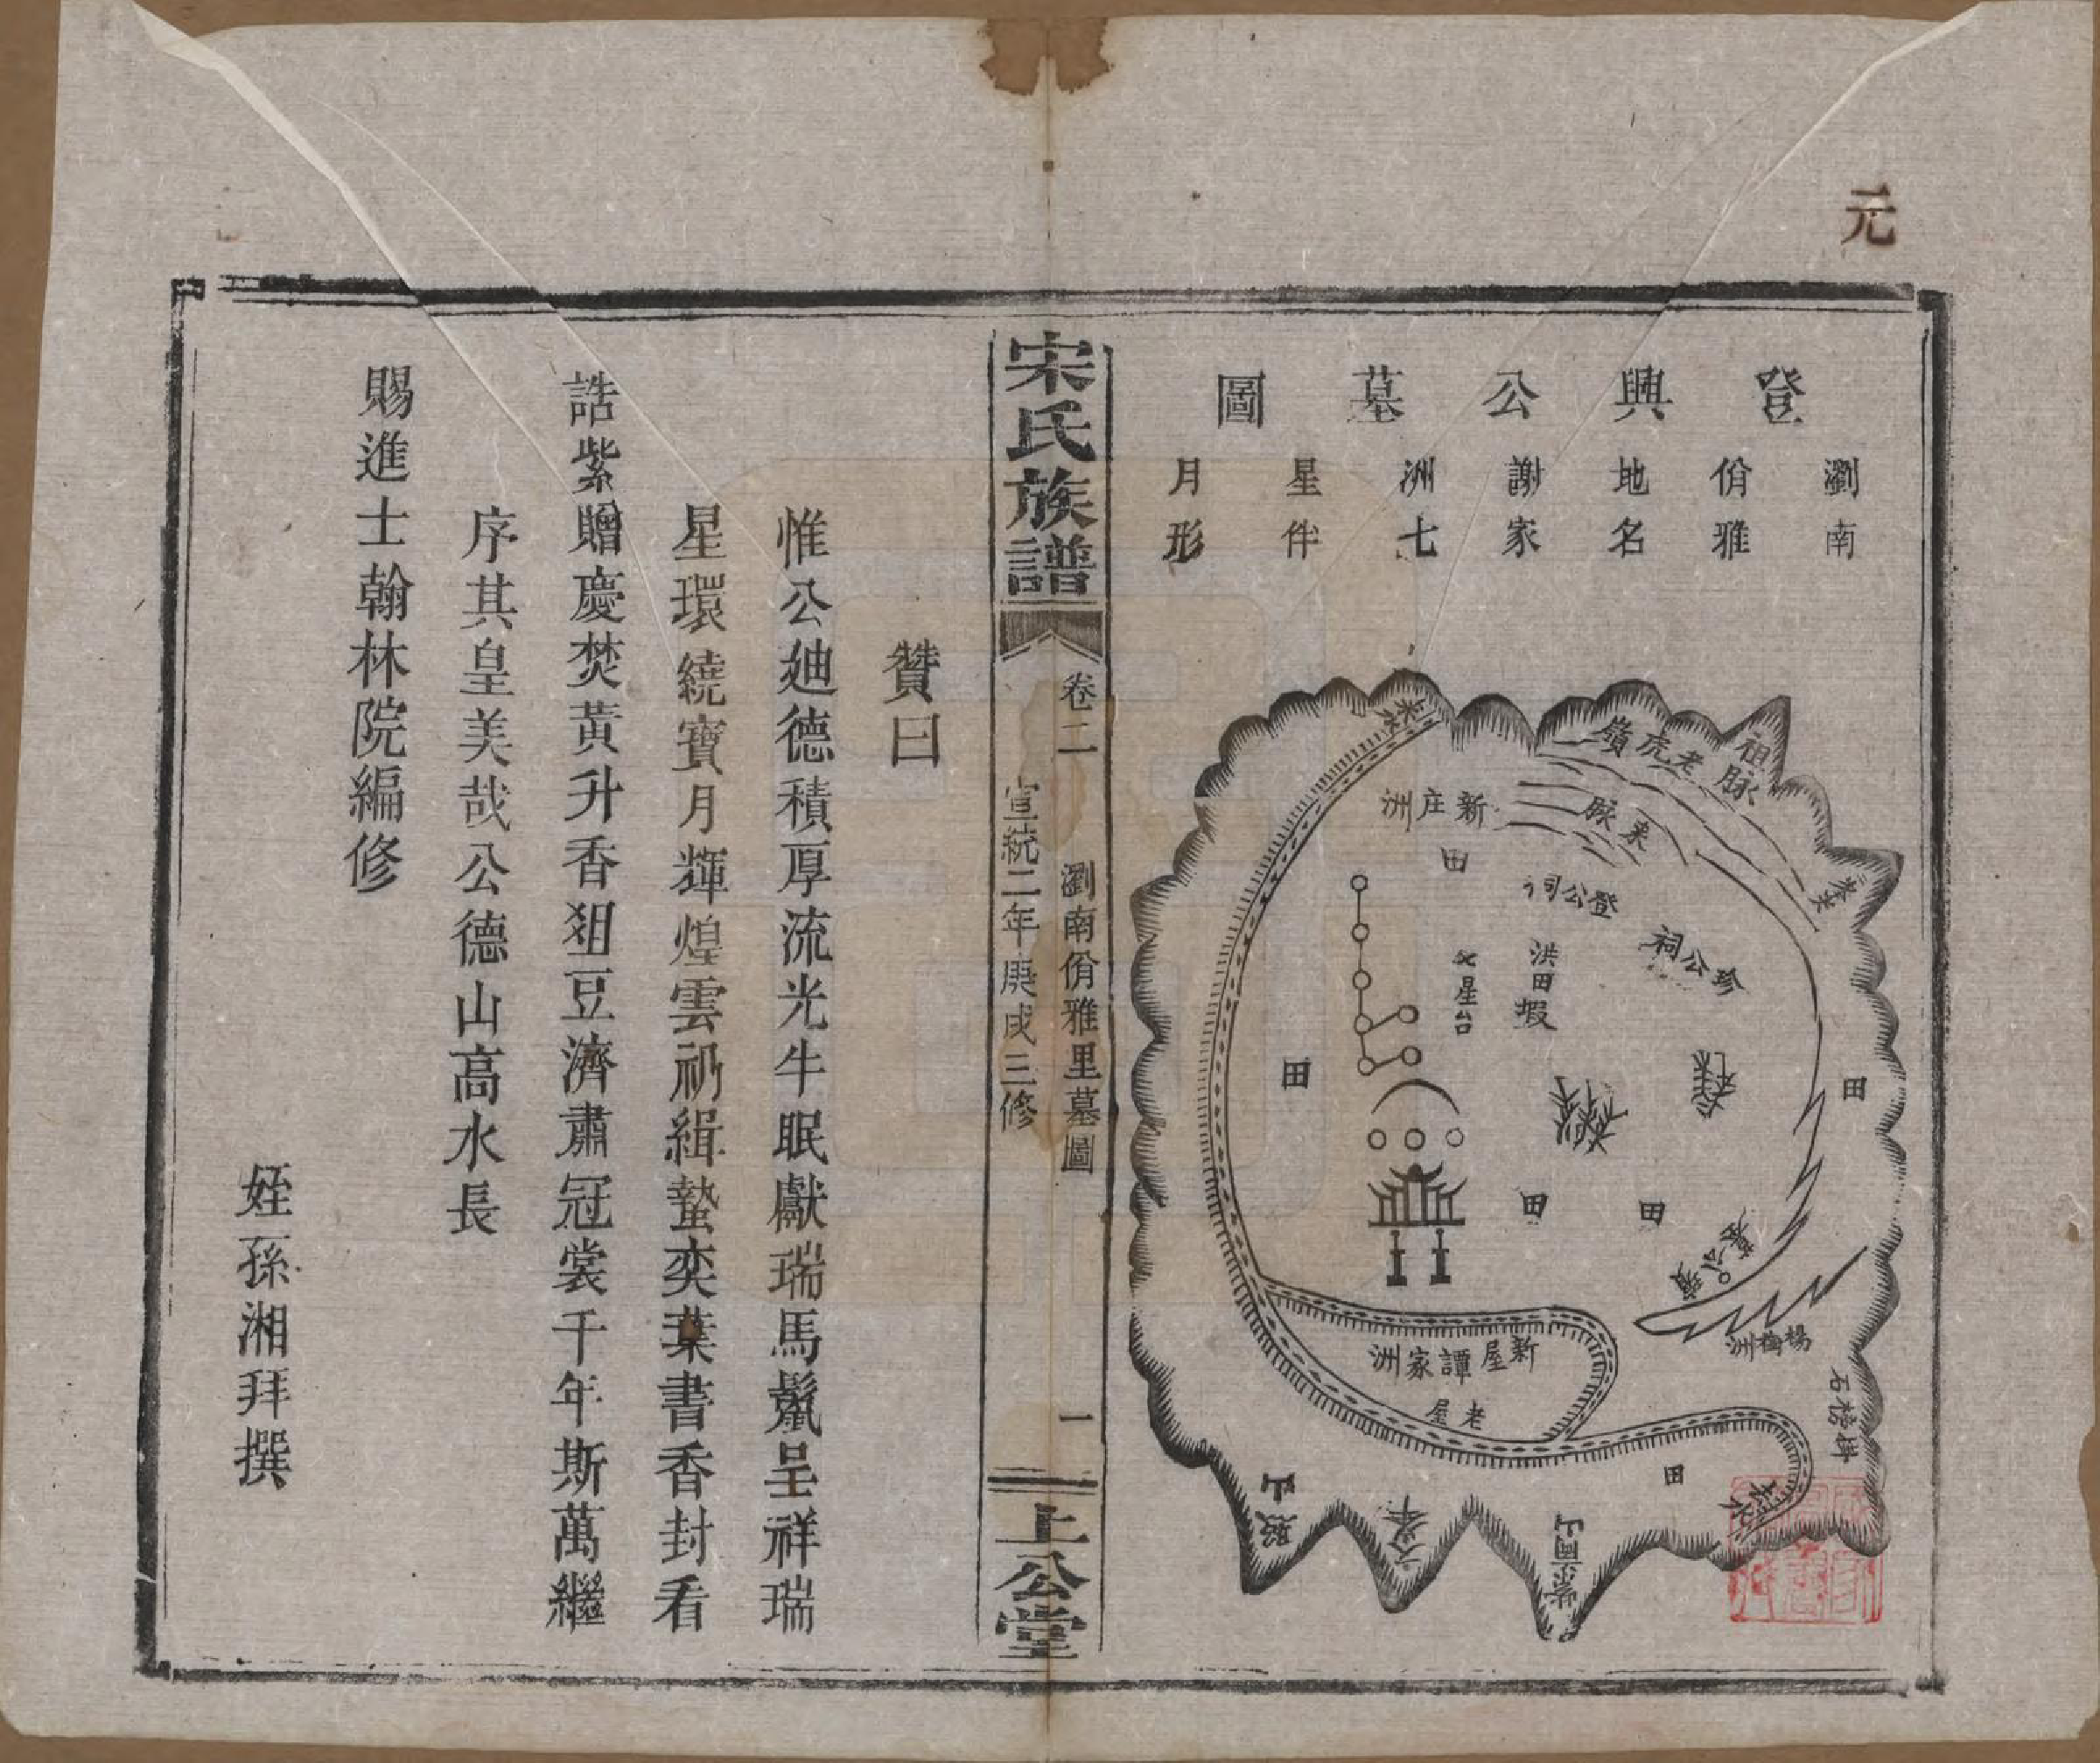 元
登興公墓圖
瀏南
佾雅
地名
謝家
洲七
星伴
月形
祖脉
老虎嶺
來脉
新庄洲
田
登公祠
珍公祠
洪田塅
七星台
田
田
田
田
楊梅洲
石榜
新屋譚家洲
老屋
田
宋氏族譜
卷二
瀏南佾雅里墓圖
一
宣統二年庚戌三修
上公堂
贊曰
惟公廸德積厚流光牛眠獻瑞馬鬣呈祥瑞
星環繞寶月輝煌雲礽緝蟄奕葉書香封看
誥紫贈慶焚黃升香俎豆濟肅冠裳千年斯萬繼
序其皇美哉公德山高水長
賜進士翰林院編修
姪孫湘拜撰